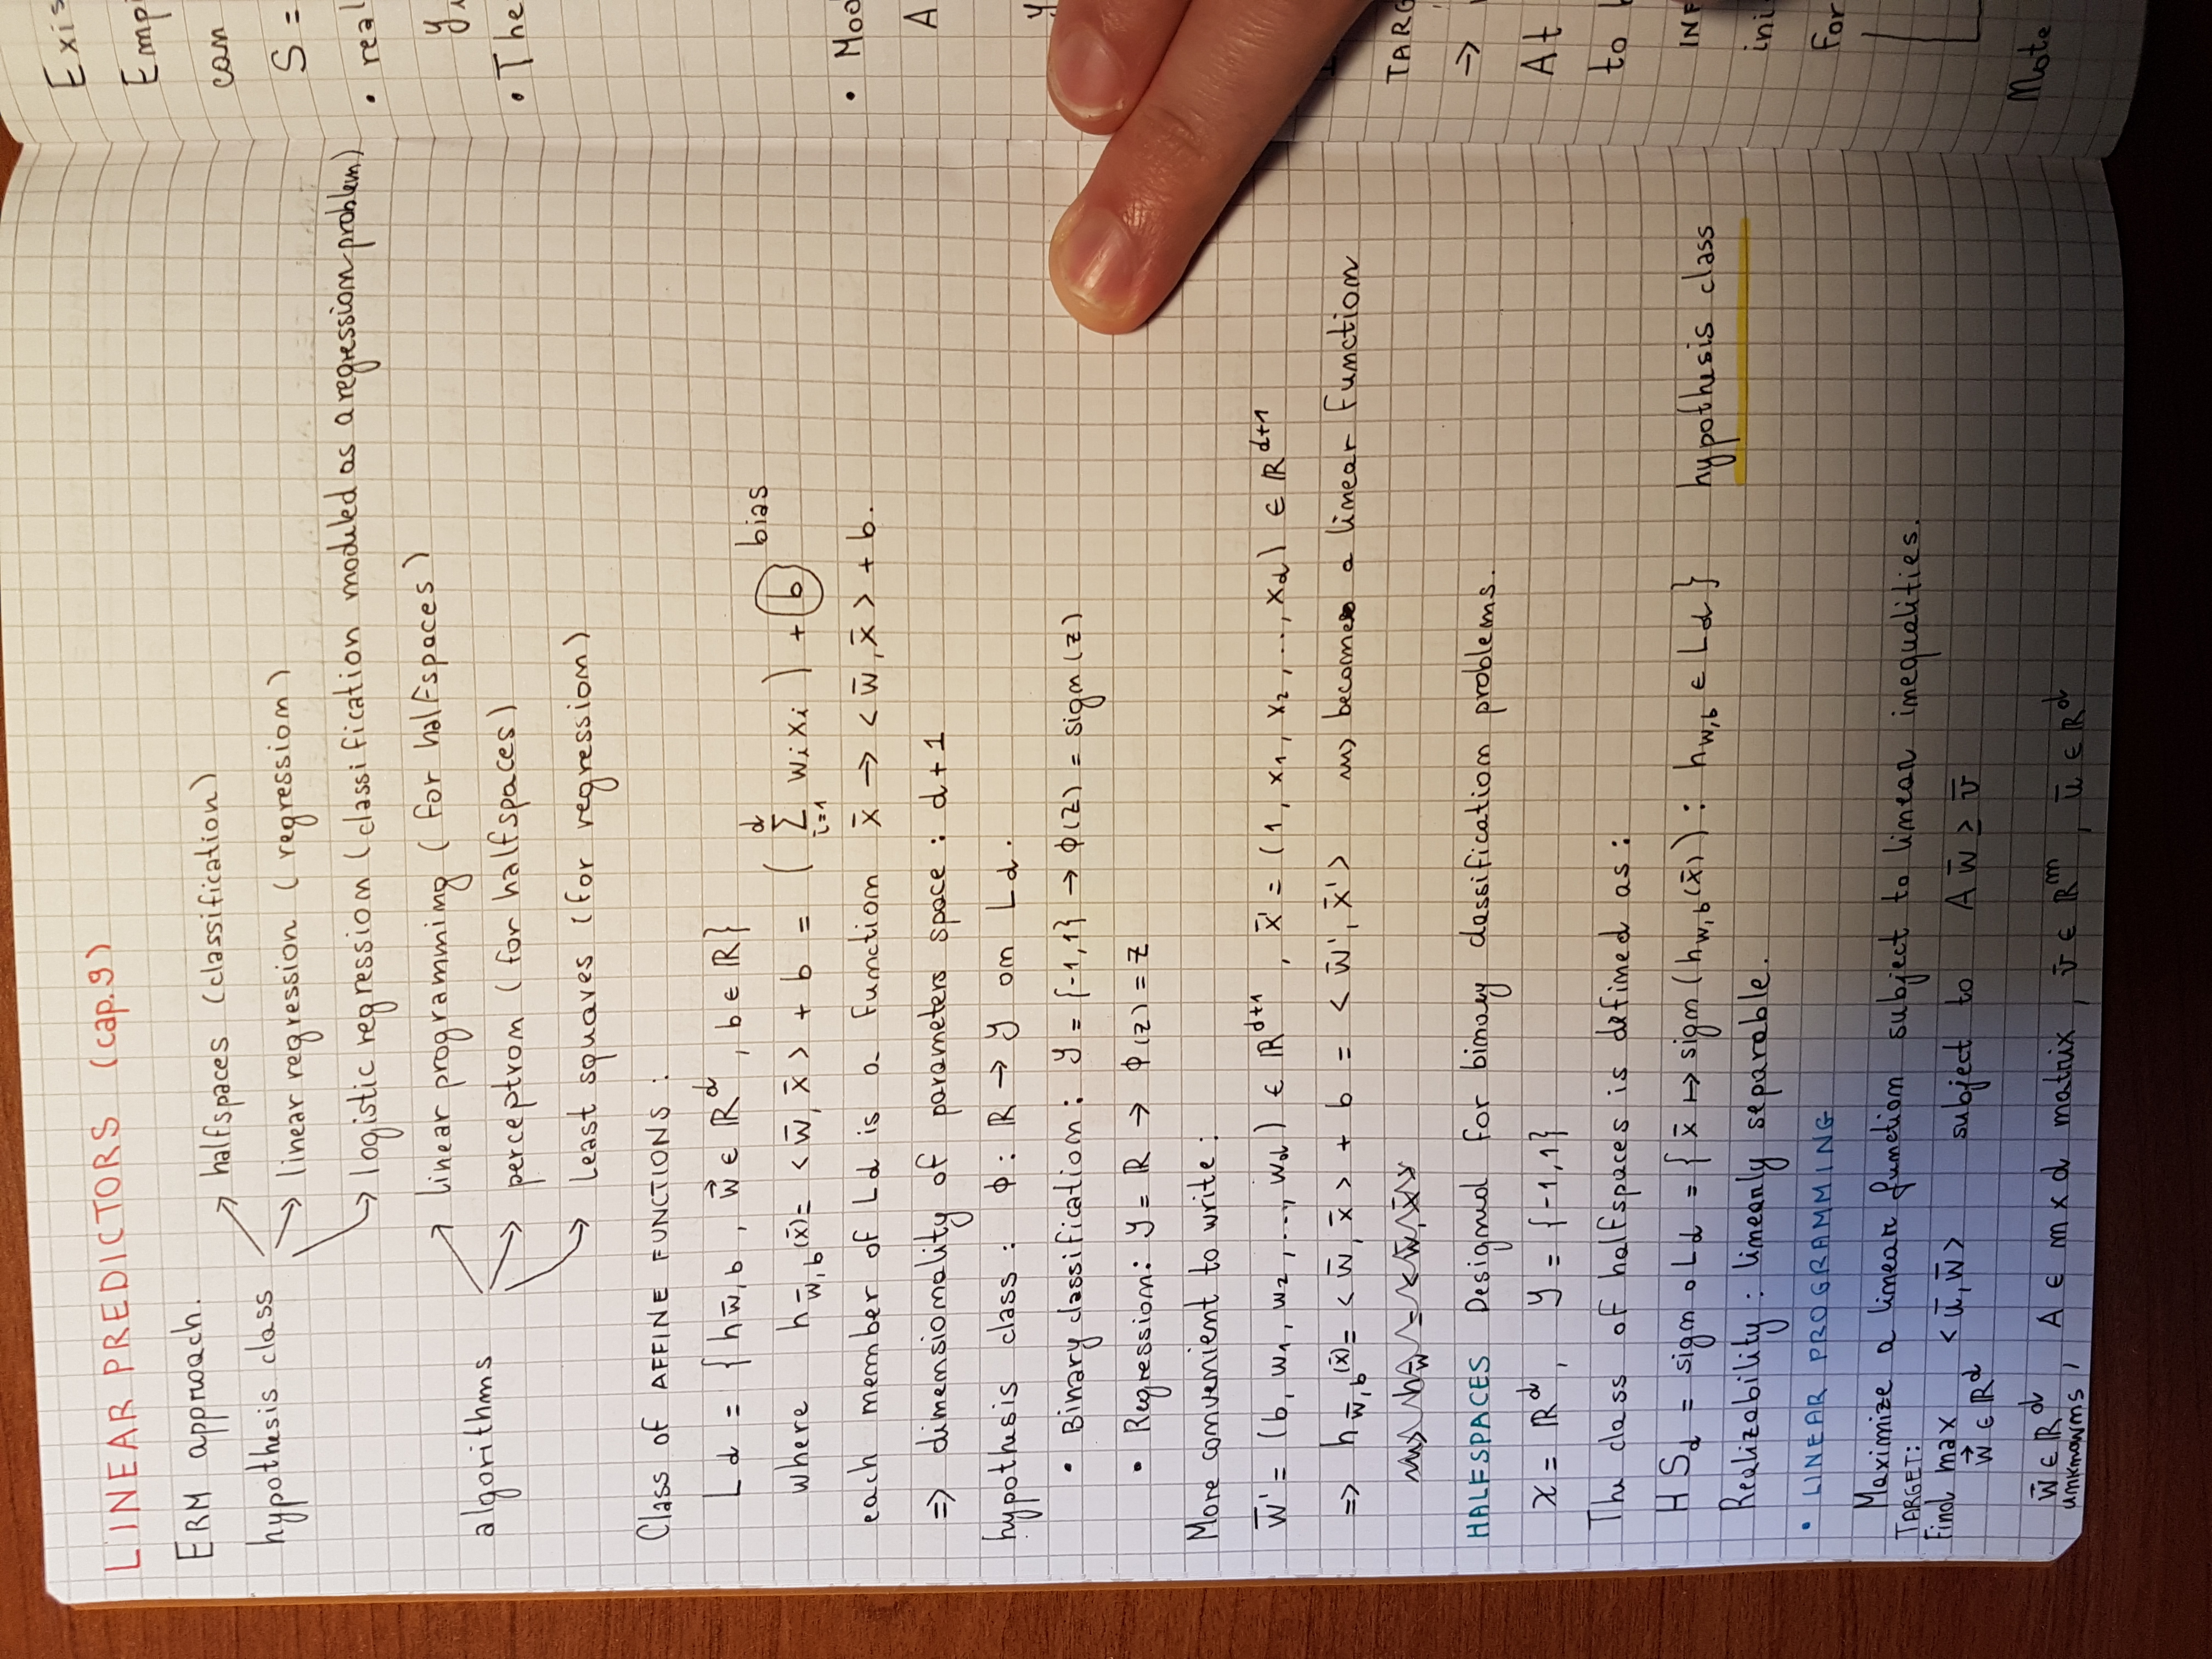 LINEAR PREDICTORS (cap.9)
ERM approach.
hypothesis class
↗ halfspaces (classification)
→ linear regression (regression)
↘ logistic regression (classification moduled as a regression problem)
algorithms
↗ linear programming (for halfspaces)
→ perceptron (for halfspaces)
↘ Least squares (for regression)
Class of AFFINE FUNCTIONS :
L d = { h w̄, b , w⃗ ∈ ℝ^d , b ∈ ℝ }
where h w̄, b (x̄) = < w̄, x̄ > + b = ( Σ_{i=1}^{d} wi xi ) + b bias
each member of L d is a function x̄ → < w̄, x̄ > + b.
=> dimensionality of parameters space : d + 1
hypothesis class : ϕ : ℝ → Y on L d.
• Binary classification : Y = {-1, 1} → ϕ(z) = sign (z)
• Regression : Y = ℝ → ϕ(z) = z
More convenient to write :
w̄' = (b, w1, w2, ..., wd) ∈ ℝ^{d+1} , x̄' = (1, x1, x2, .., xd) ∈ ℝ^{d+1}
=> h w̄, b (x̄) = < w̄, x̄ > + b = < w̄', x̄' > ⇝ becomes a linear function
HALFSPACES Designed for binary classification problems.
X = ℝ^d , Y = {-1, 1}
The class of halfspaces is defined as :
HS_d = sign ∘ L d = { x̄ ↦ sign (h_{w,b} (x̄)) : h_{w,b} ∈ L d } hypothesis class
Realizability : linearly separable.
• LINEAR PROGRAMMING
Maximize a linear function subject to linear inequalities.
TARGET:
Find max < ū, w̄ > subject to A w̄ ≥ v̄
w⃗ ∈ ℝ^d
w̄ ∈ ℝ^d , A ∈ m x d matrix , v̄ ∈ ℝ^m , ū ∈ ℝ^d
unknowns
Exis
Emp
can
S =
• real
y
• The
• Moo
A
y
TARG
→
At
to
INF
ini
For
Note